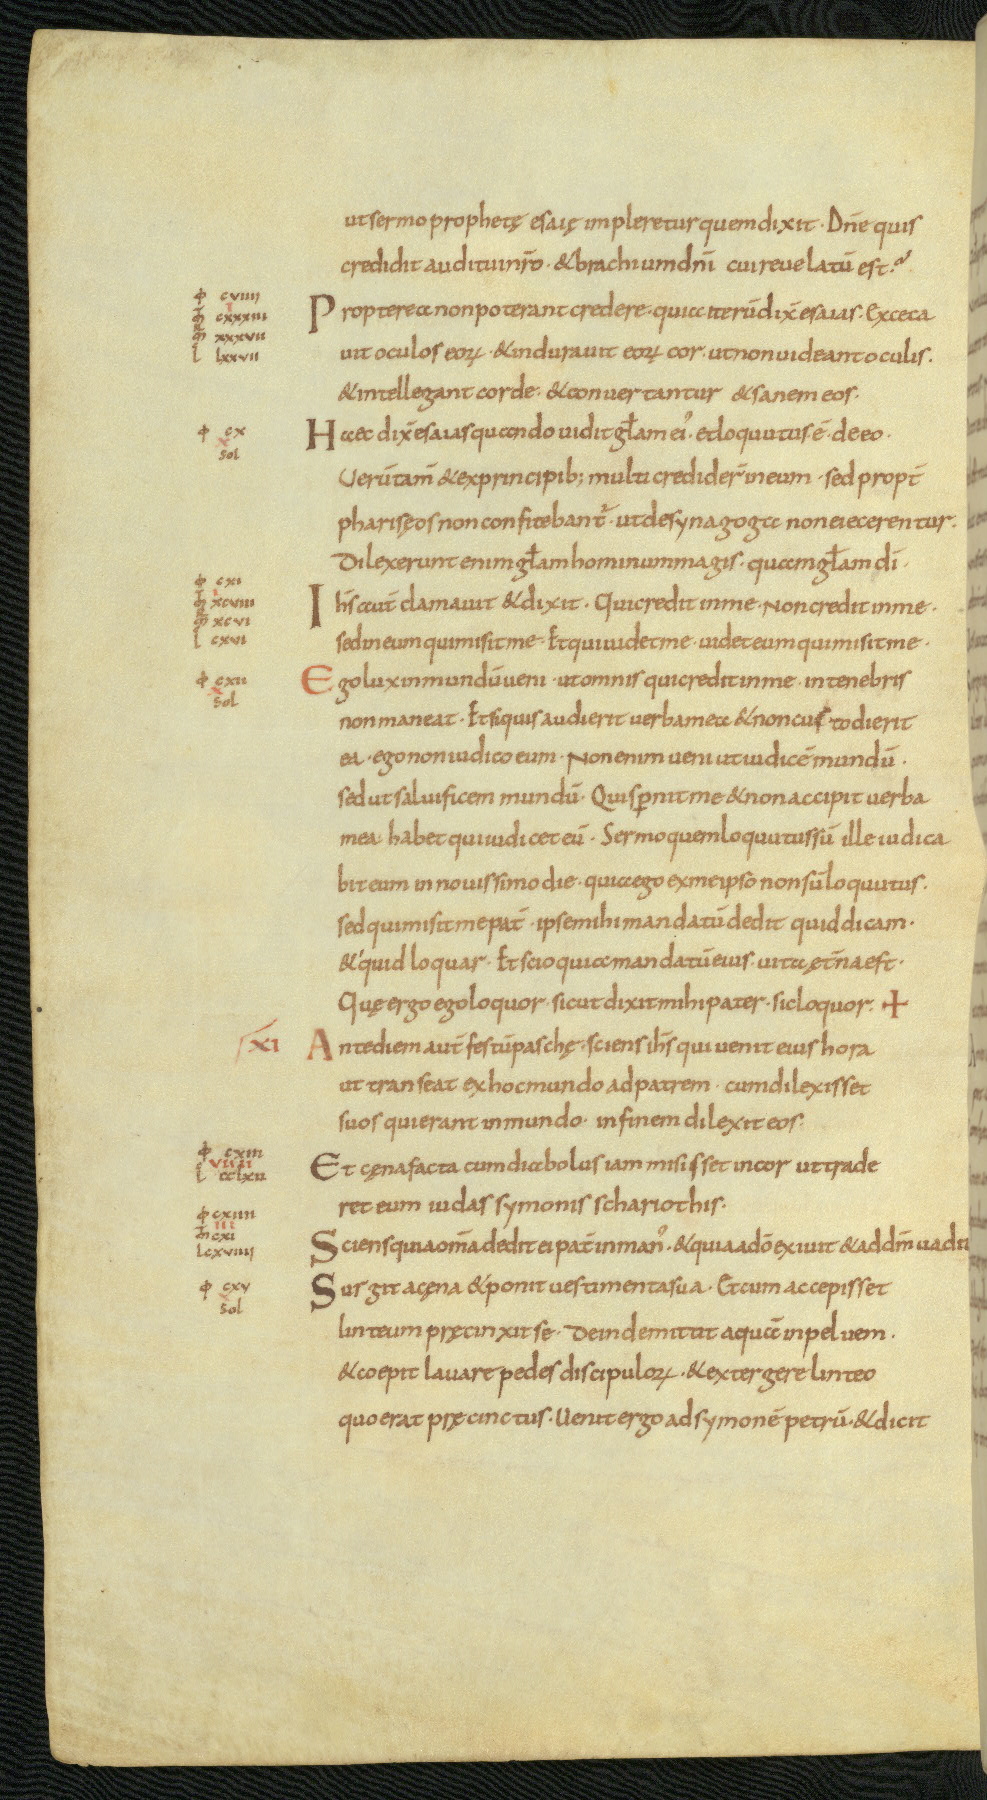 ut sermo prophetę esaię impleretur quem dixit · Dn̄e quis
credidit auditui nr̄o · & brachium dn̄i cui revelatū est ·
ⲫ cviiii
m̄ cxxxiii
m̄ xxxvii
l lxxvii
Propterea non poterant credere · quia iterū dix̄ esaias · Exceca
vit oculos eoꝝ · & induravit eoꝝ cor · ut non videant oculis ·
& intellegant corde · & convertantur & sanem eos ·
ⲫ cx
sol
Haec dix̄ esaias quando vidit gl̄am ei᾿ · et loquutus ē · de eo ·
Verūtam̄ & ex principib; multi credider̄ in eum · sed propt̄
pharisęos non confitebant᷑ · ut de synagoga non eiecerentur ·
Dilexerunt enim gl̄am hominum magis · quam gl̄am dī ·
ⲫ cxi
m̄ xcviii
m̄ xcvi
l cxvi
Ih̄s aut̄ clamavit & dixit · Qui credit in me · Non credit in me ·
sed in eum qui misit me · Et qui videt me · videt eum qui misit me ·
ⲫ cxii
sol
Ego lux in mundū veni · ut omnis qui credit in me · in tenebris
non maneat · Et si quis audierit verba mea & non custodierit
ea · ego non iudico eum · Non enim veni ut iudicē mundū ·
sed ut salvificem mundū · Qui sp̄nit me & non accipit verba
mea · habet qui iudicet eū · Sermo quem loquutus sū ille iudica
bit eum in novissimo die · quia ego ex me ipso non sū loquutus ·
sed qui misit me pat̄ · ipse mihi mandatū dedit quid dicam ·
& quid loquar · Et scio quia mandatū eius · vita ęt̄na est ·
Quę ergo ego loquor · sicut dixit mihi pater · sic loquor · +
xi
Ante diem aut̄ festū paschę · sciens ih̄s qui venit eius hora
ut transeat ex hoc mundo ad patrem · cum dilexisset
suos qui erant in mundo · in finem dilexit eos ·
ⲫ cxiii
l cclxii
Et cęna facta cum diabolus iam misisset in cor ut trade
ret eum iudas symonis schariothis ·
ⲫ cxiiii
m̄ cxi
l cxviiii
Sciens quia om̄a dedit ei pat̄ in man᾿ · & quia a dō exivit & ad dm̄ vadit
ⲫ cxv
sol
Surgit a cęna & ponit vestimenta sua · Et cum accepisset
linteum pręcinxit se · Dein de mittit aquā in pelvem ·
& coepit lavare pedes discipuloꝝ · & extergere linteo
quo erat pręcinctus · Venit ergo ad symonē petrū · & dicit